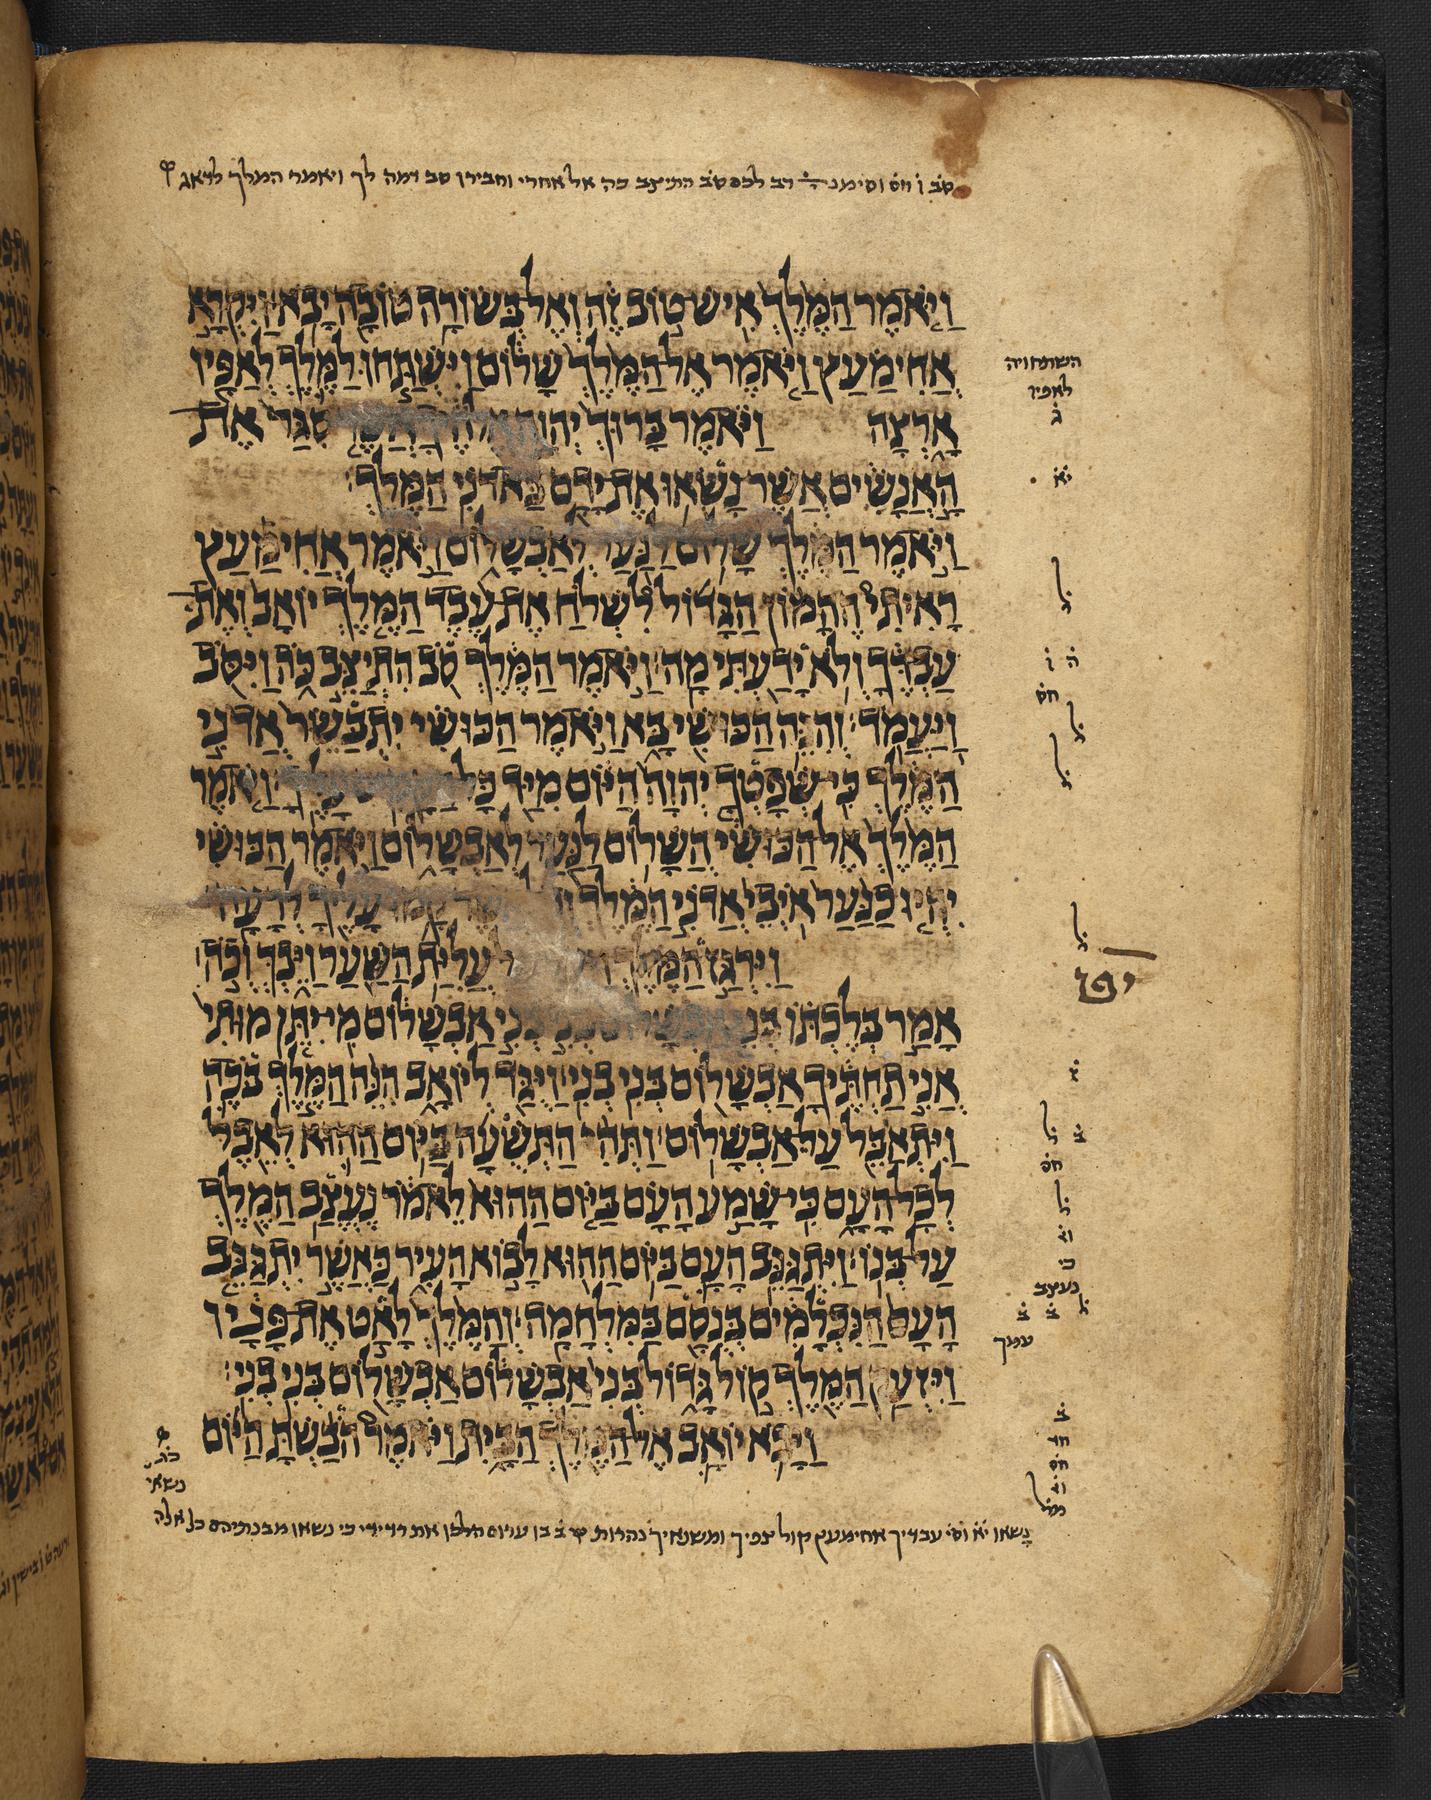 סב ו חס וסימנה רב לכם סב התיצב כה אל אחרי וחבירו סב דמה לך ויאמר המלך לדאג
וַיֹּאמֶר הַמֶּלֶךְ אִישׁ טוֹב זֶה וְאֶל בְּשׂוֹרָה טוֹבָה יָבֹא וַיִּקְרָא
אֲחִימַעַץ וַיֹּאמֶר אֶל הַמֶּלֶךְ שָׁלוֹם וַיִּשְׁתַּחוּ לַמֶּלֶךְ לְאַפָּיו
אָרְצָה וַיֹּאמֶר בָּרוּךְ יְהוָה אֱלֹהֶיךָ אֲשֶׁר סִגַּר אֶת
הָאֲנָשִׁים אֲשֶׁר נָשְׂאוּ אֶת יָדָם בַּאדֹנִי הַמֶּלֶךְ׃
וַיֹּאמֶר הַמֶּלֶךְ שָׁלוֹם לַנַּעַר לְאַבְשָׁלוֹם וַיֹּאמֶר אֲחִימַעַץ
רָאִיתִי הֶהָמוֹן הַגָּדוֹל לִשְׁלֹחַ אֶת עֶבֶד הַמֶּלֶךְ יוֹאָב וְאֶת
עַבְדֶּךָ וְלֹא יָדַעְתִּי מָה׃ וַיֹּאמֶר הַמֶּלֶךְ סֹב הִתְיַצֵּב כֹּה וַיִּסֹּב
וַיַּעֲמֹד׃ וְהִנֵּה הַכּוּשִׁי בָּא וַיֹּאמֶר הַכּוּשִׁי יִתְבַּשֵּׂר אֲדֹנִי
הַמֶּלֶךְ כִּי שְׁפָטְךָ יְהוָה הַיּוֹם מִיַּד כָּל וַיֹּאמֶר
הַמֶּלֶךְ אֶל הַכּוּשִׁי הֲשָׁלוֹם לַנַּעַר לְאַבְשָׁלוֹם וַיֹּאמֶר הַכּוּשִׁי
יִהְיוּ כַנַּעַר אֹיְבֵי אֲדֹנִי הַמֶּלֶךְ קָמוּ עָלֶיךָ לְרָעָה׃
וַיִּרְגַּז הַמֶּלֶךְ עֲלִיַּת הַשַּׁעַר וַיֵּבְךְּ וְכֹה
אָמַר בְּלֶכְתּוֹ בְּנִי אַבְשָׁלוֹם בְּנִי בְנִי אַבְשָׁלוֹם מִי יִתֵּן מוּתִי
אֲנִי תַחְתֶּיךָ אַבְשָׁלוֹם בְּנִי בְנִי׃ וַיֻּגַּד לְיוֹאָב הִנֵּה הַמֶּלֶךְ בֹּכֶה
וַיִּתְאַבֵּל עַל אַבְשָׁלוֹם׃ וַתְּהִי הַתְּשֻׁעָה בַּיּוֹם הַהוּא לְאֵבֶל
לְכָל הָעָם כִּי שָׁמַע הָעָם בַּיּוֹם הַהוּא לֵאמֹר נֶעֱצַב הַמֶּלֶךְ
עַל בְּנוֹ׃ וַיִּתְגַּנֵּב הָעָם בַּיּוֹם הַהוּא לָבוֹא הָעִיר כַּאֲשֶׁר יִתְגַּנֵּב
הָעָם הַנִּכְלָמִים בְּנֻסָם בַּמִּלְחָמָה׃ וְהַמֶּלֶךְ לָאַט אֶת פָּנָיו
וַיִּזְעַק הַמֶּלֶךְ קוֹל גָּדוֹל בְּנִי אַבְשָׁלוֹם אַבְשָׁלוֹם בְּנִי בְנִי׃
וַיָּבֹא יוֹאָב אֶל הַמֶּלֶךְ הַבָּיִת וַיֹּאמֶר הֹבַשְׁתָּ הַיּוֹם
השתחויה
לאפיו
ג
יא
ל
ה ו
חס
ל
ל
ל
ז
ב ל
חס
ל
כי
נעצב
ל ב ב
ב
חד
חס
נשאו יא וס עבדיך אחימעץ קול צפיך ומשנאיך נהרות